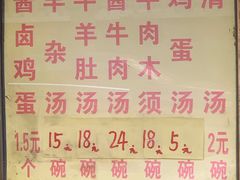 卤鸡蛋 1.5元 个
羊杂汤 15元 碗
羊肚汤 18元 碗
牛肉汤 24元 碗
肉木须汤 18元 碗
鸡蛋汤 5元 碗
清汤 2元 碗